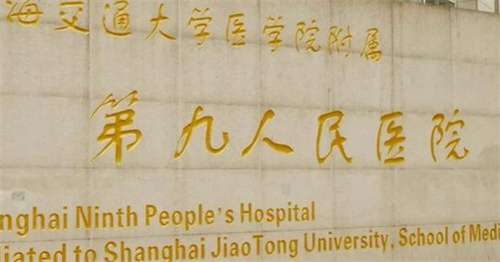 海交通大学医学院附属
第九人民医院
nghai Ninth People's Hospital
iated to Shanghai JiaoTong University, School of Medi